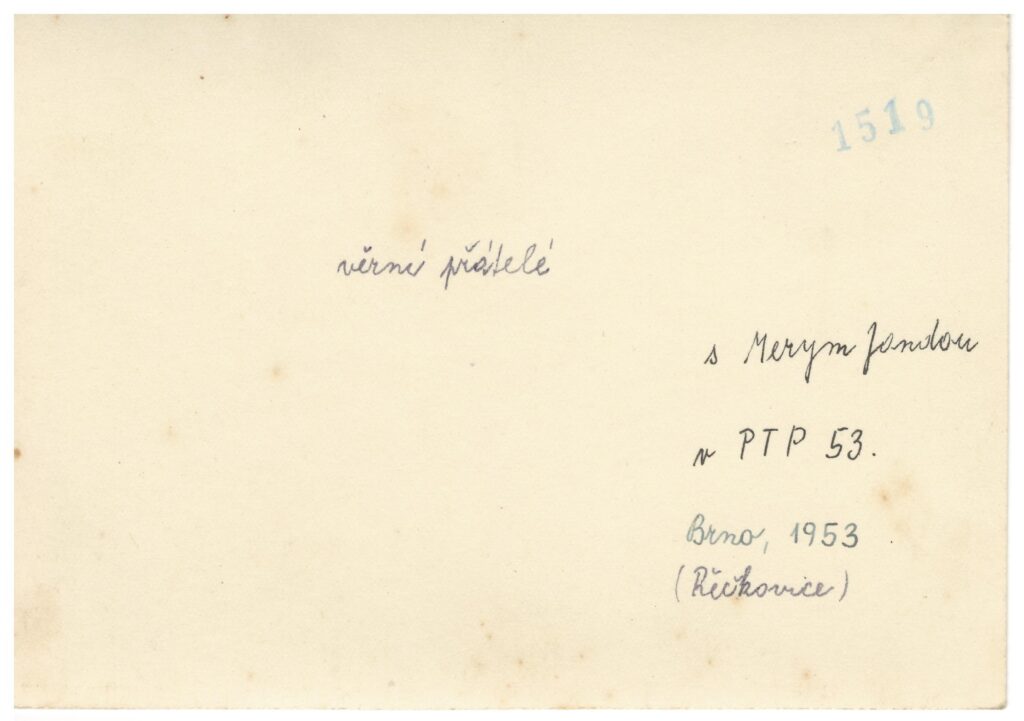 1519
věrní přátelé
s Merym Jandou
v PTP 53.
Brno, 1953
(Řečkovice)